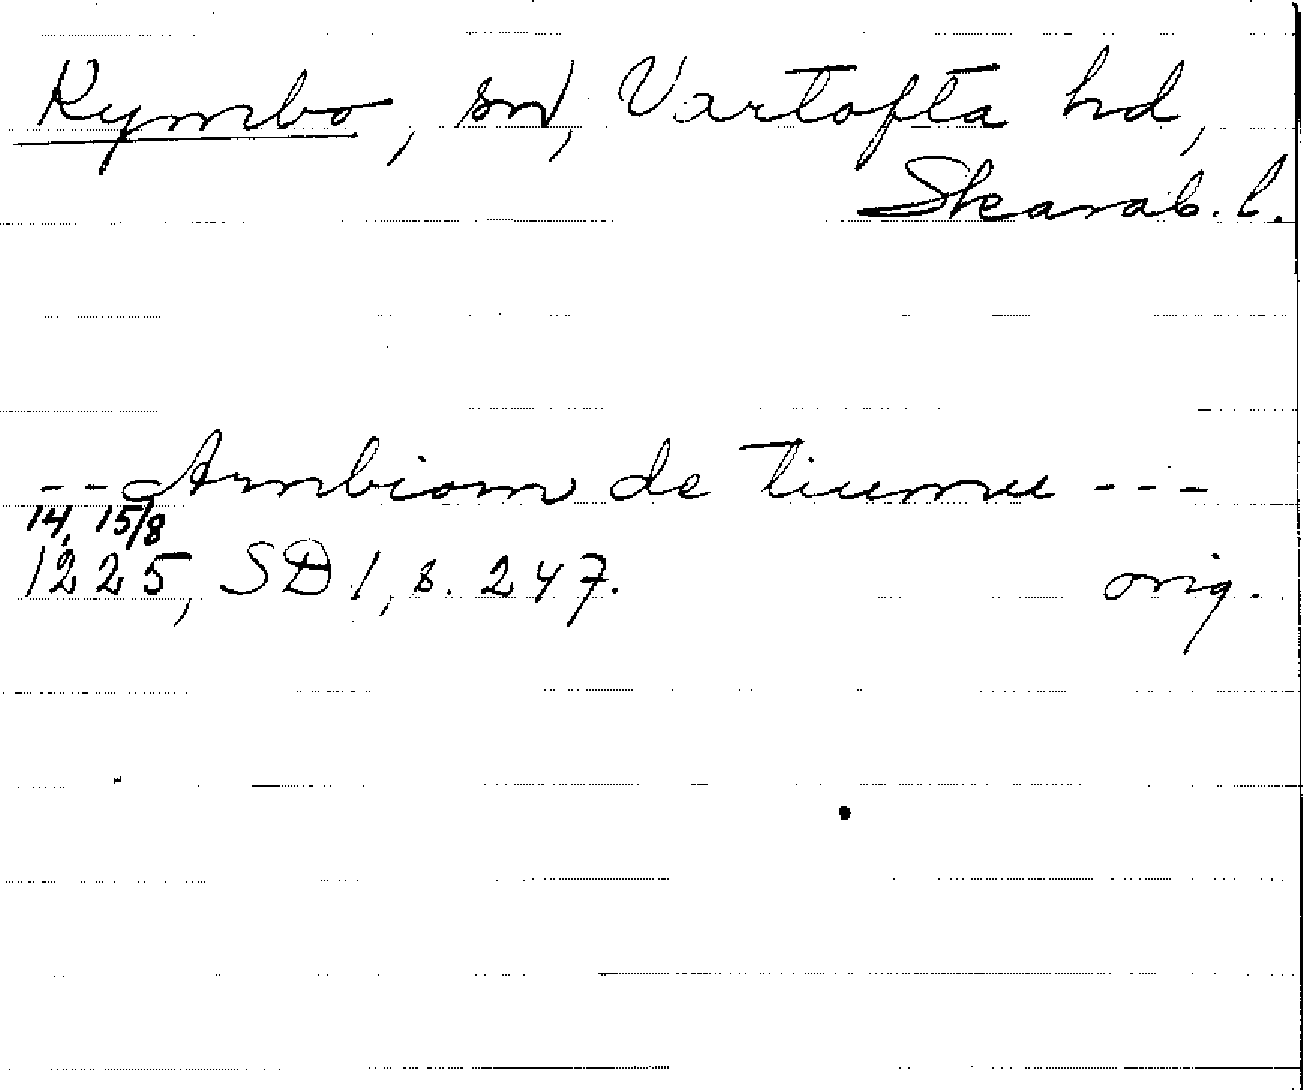 Kymbo, sn, Vartofta hd,
Skarab. l.
-- Arnbiorn de ---
14, 15/8
1225, SD 1, s. 247. orig.